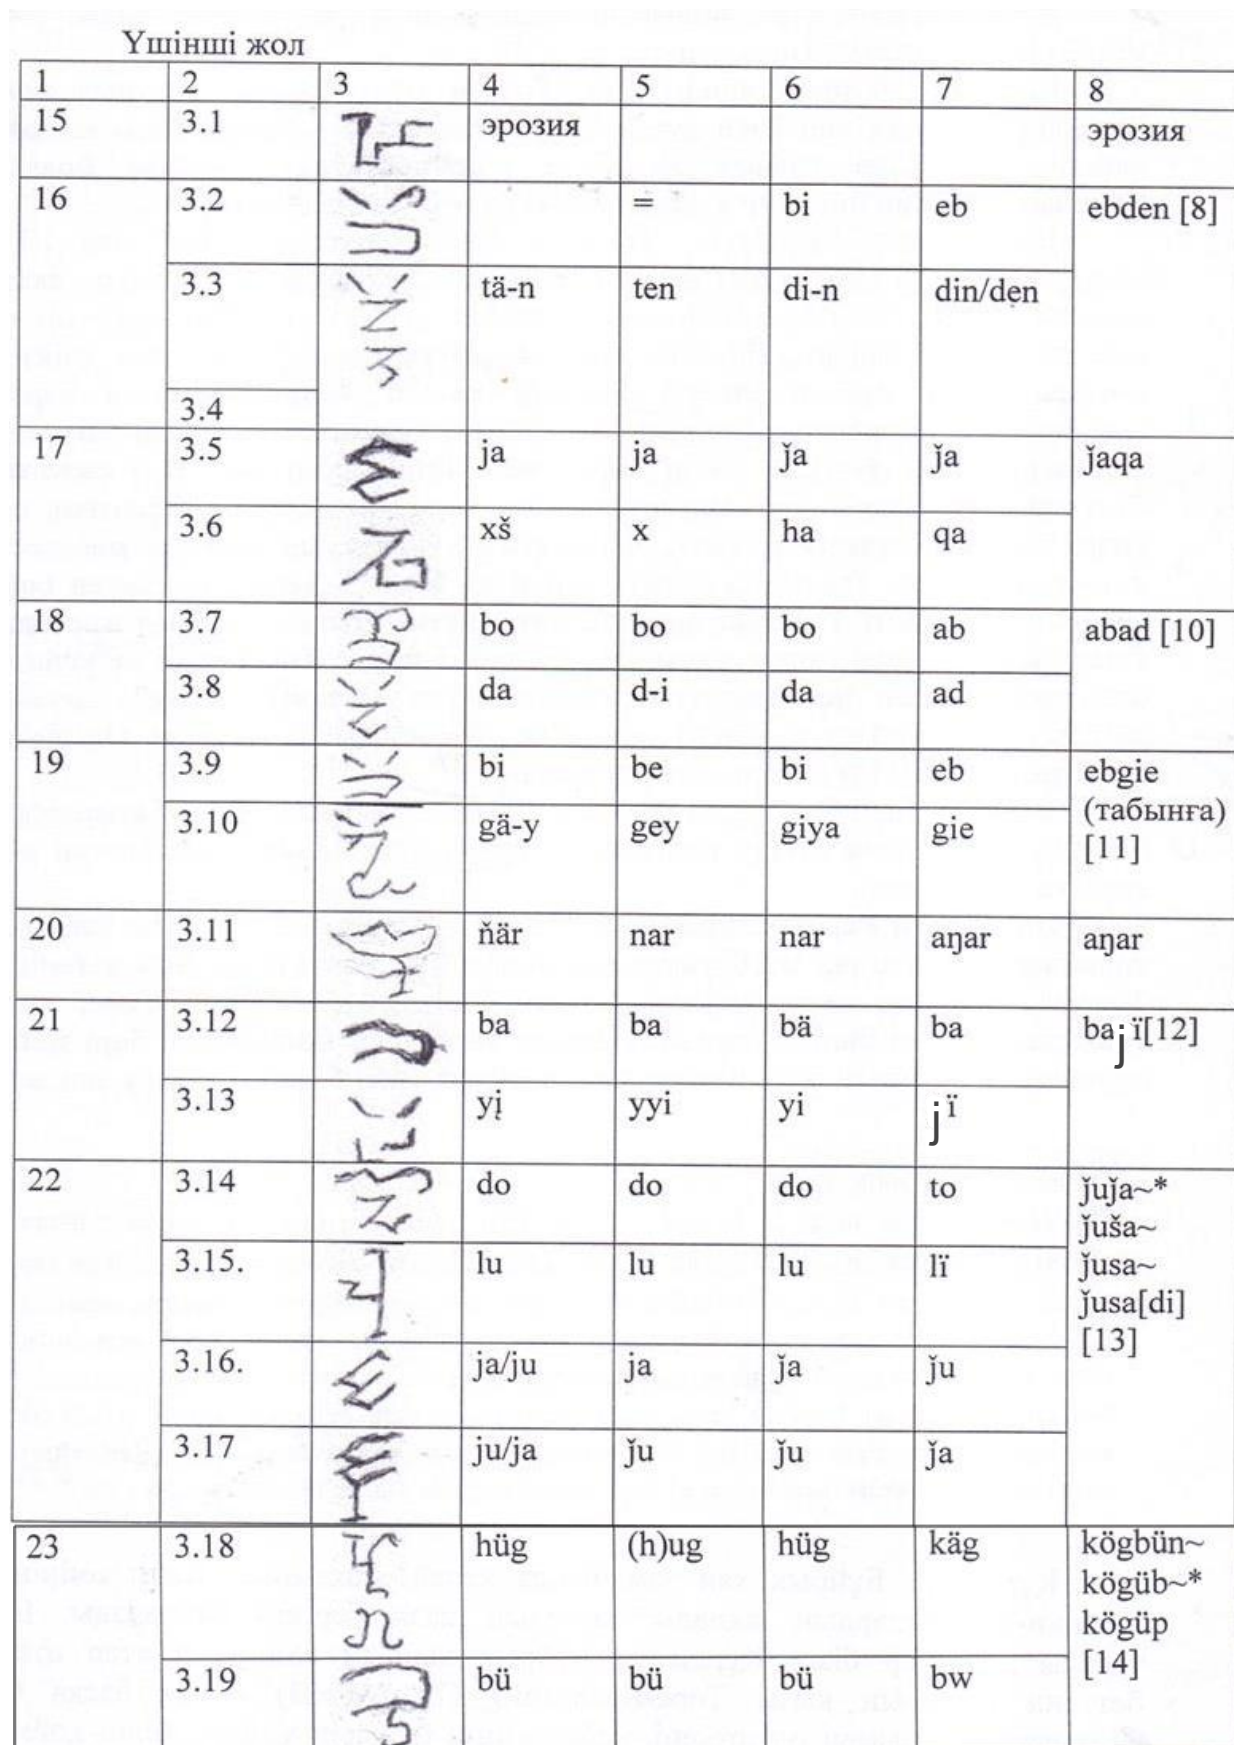 Үшінші жол
1 2 3 4 5 6 7 8
15 3.1 эрозия эрозия
16 3.2 = bi eb ebden [8]
3.3 tä-n ten di-n din/den
3.4
17 3.5 ja ja ǰa ǰa ǰaqa
3.6 xš x ha qa
18 3.7 bo bo bo ab abad [10]
3.8 da d-i da ad
19 3.9 bi be bi eb ebgie
(табынға)
3.10 gä-y gey giya gie
[11]
20 3.11 ňär nar nar aŋar aŋar
21 3.12 ba ba bä ba baj ï[12]
3.13 yį yyi yi j ï
22 3.14 do do do to ǰuǰa~*
ǰuša~
3.15. lu lu lu lï ǰusa~
ǰusa[di]
[13]
3.16. ja/ju ja ǰa ǰu
3.17 ju/ja ǰu ǰu ǰa
23 3.18 hüg (h)ug hüg käg kögbün~
kögüb~*
kögüp
[14]
3.19 bü bü bü bw